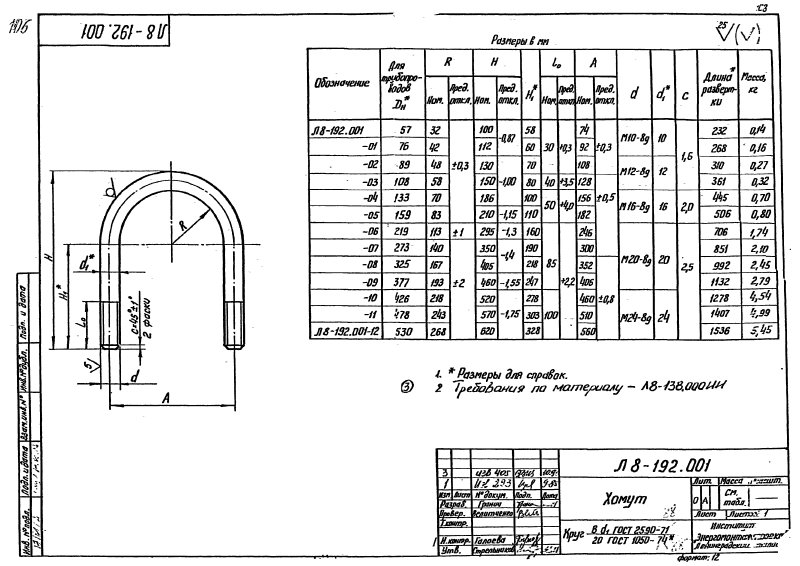 106
Л8-192.001
С3
25
(√)
Размеры в мм
Обозначение | Для трубопроводов Dн* | R Ном. | R Пред. откл. | H Ном. | H Пред. откл. | H₁* | L₀ Ном. | L₀ Пред. откл. | A Ном. | A Пред. откл. | d | d₁* | c | Длина* развертки | Масса, кг
Л8-192.001 57 32 ±0,3 100 -0,87 58 30 +0,3 74 ±0,3 М10-8g 10 1,6 232 0,14
-01 76 42 112 60 92 268 0,16
-02 89 48 130 -1,00 70 40 +3,5 108 ±0,5 М12-8g 12 310 0,27
-03 108 58 150 80 128 361 0,32
-04 133 70 186 -1,15 100 50 +4,0 156 М16-8g 16 2,0 445 0,70
-05 159 83 210 110 182 506 0,80
-06 219 113 ±1 295 -1,3 160 85 +2,2 246 ±0,8 М20-8g 20 2,5 706 1,74
-07 273 140 ±2 350 -1,4 190 300 851 2,10
-08 325 167 405 218 352 992 2,45
-09 377 193 460 -1,55 247 406 1132 2,79
-10 426 218 520 -1,75 278 100 460 М24-8g 24 1278 4,54
-11 478 243 570 303 510 1407 4,99
Л8-192.001-12 530 268 620 328 560 1536 5,45
R
H
H₁*
d₁*
L₀
c×45°±1°
2 фаски
5
d
A
1. * Размеры для справок.
③ 2 Требования по материалу – Л8-138.000ИИ
Подп. и дата
Инв.№ дубл.
Взам.инв.№
Подп. и дата
Инв. № подл.
3 изв 405
1 293
Изм Лист № докум. Подп. Дата
Разраб. Гранич
Провер.
Т.контр.
Н.контр. Голаева
Утв. Стрельников
Л 8-192.001
Хомут
Лит. Масса
О А См. табл.
Лист Листов 1
Круг В d₁ ГОСТ 2590-71
20 ГОСТ 1050-74*
Институт
Энергомонтажпроект
Ленинградский
Формат: 12